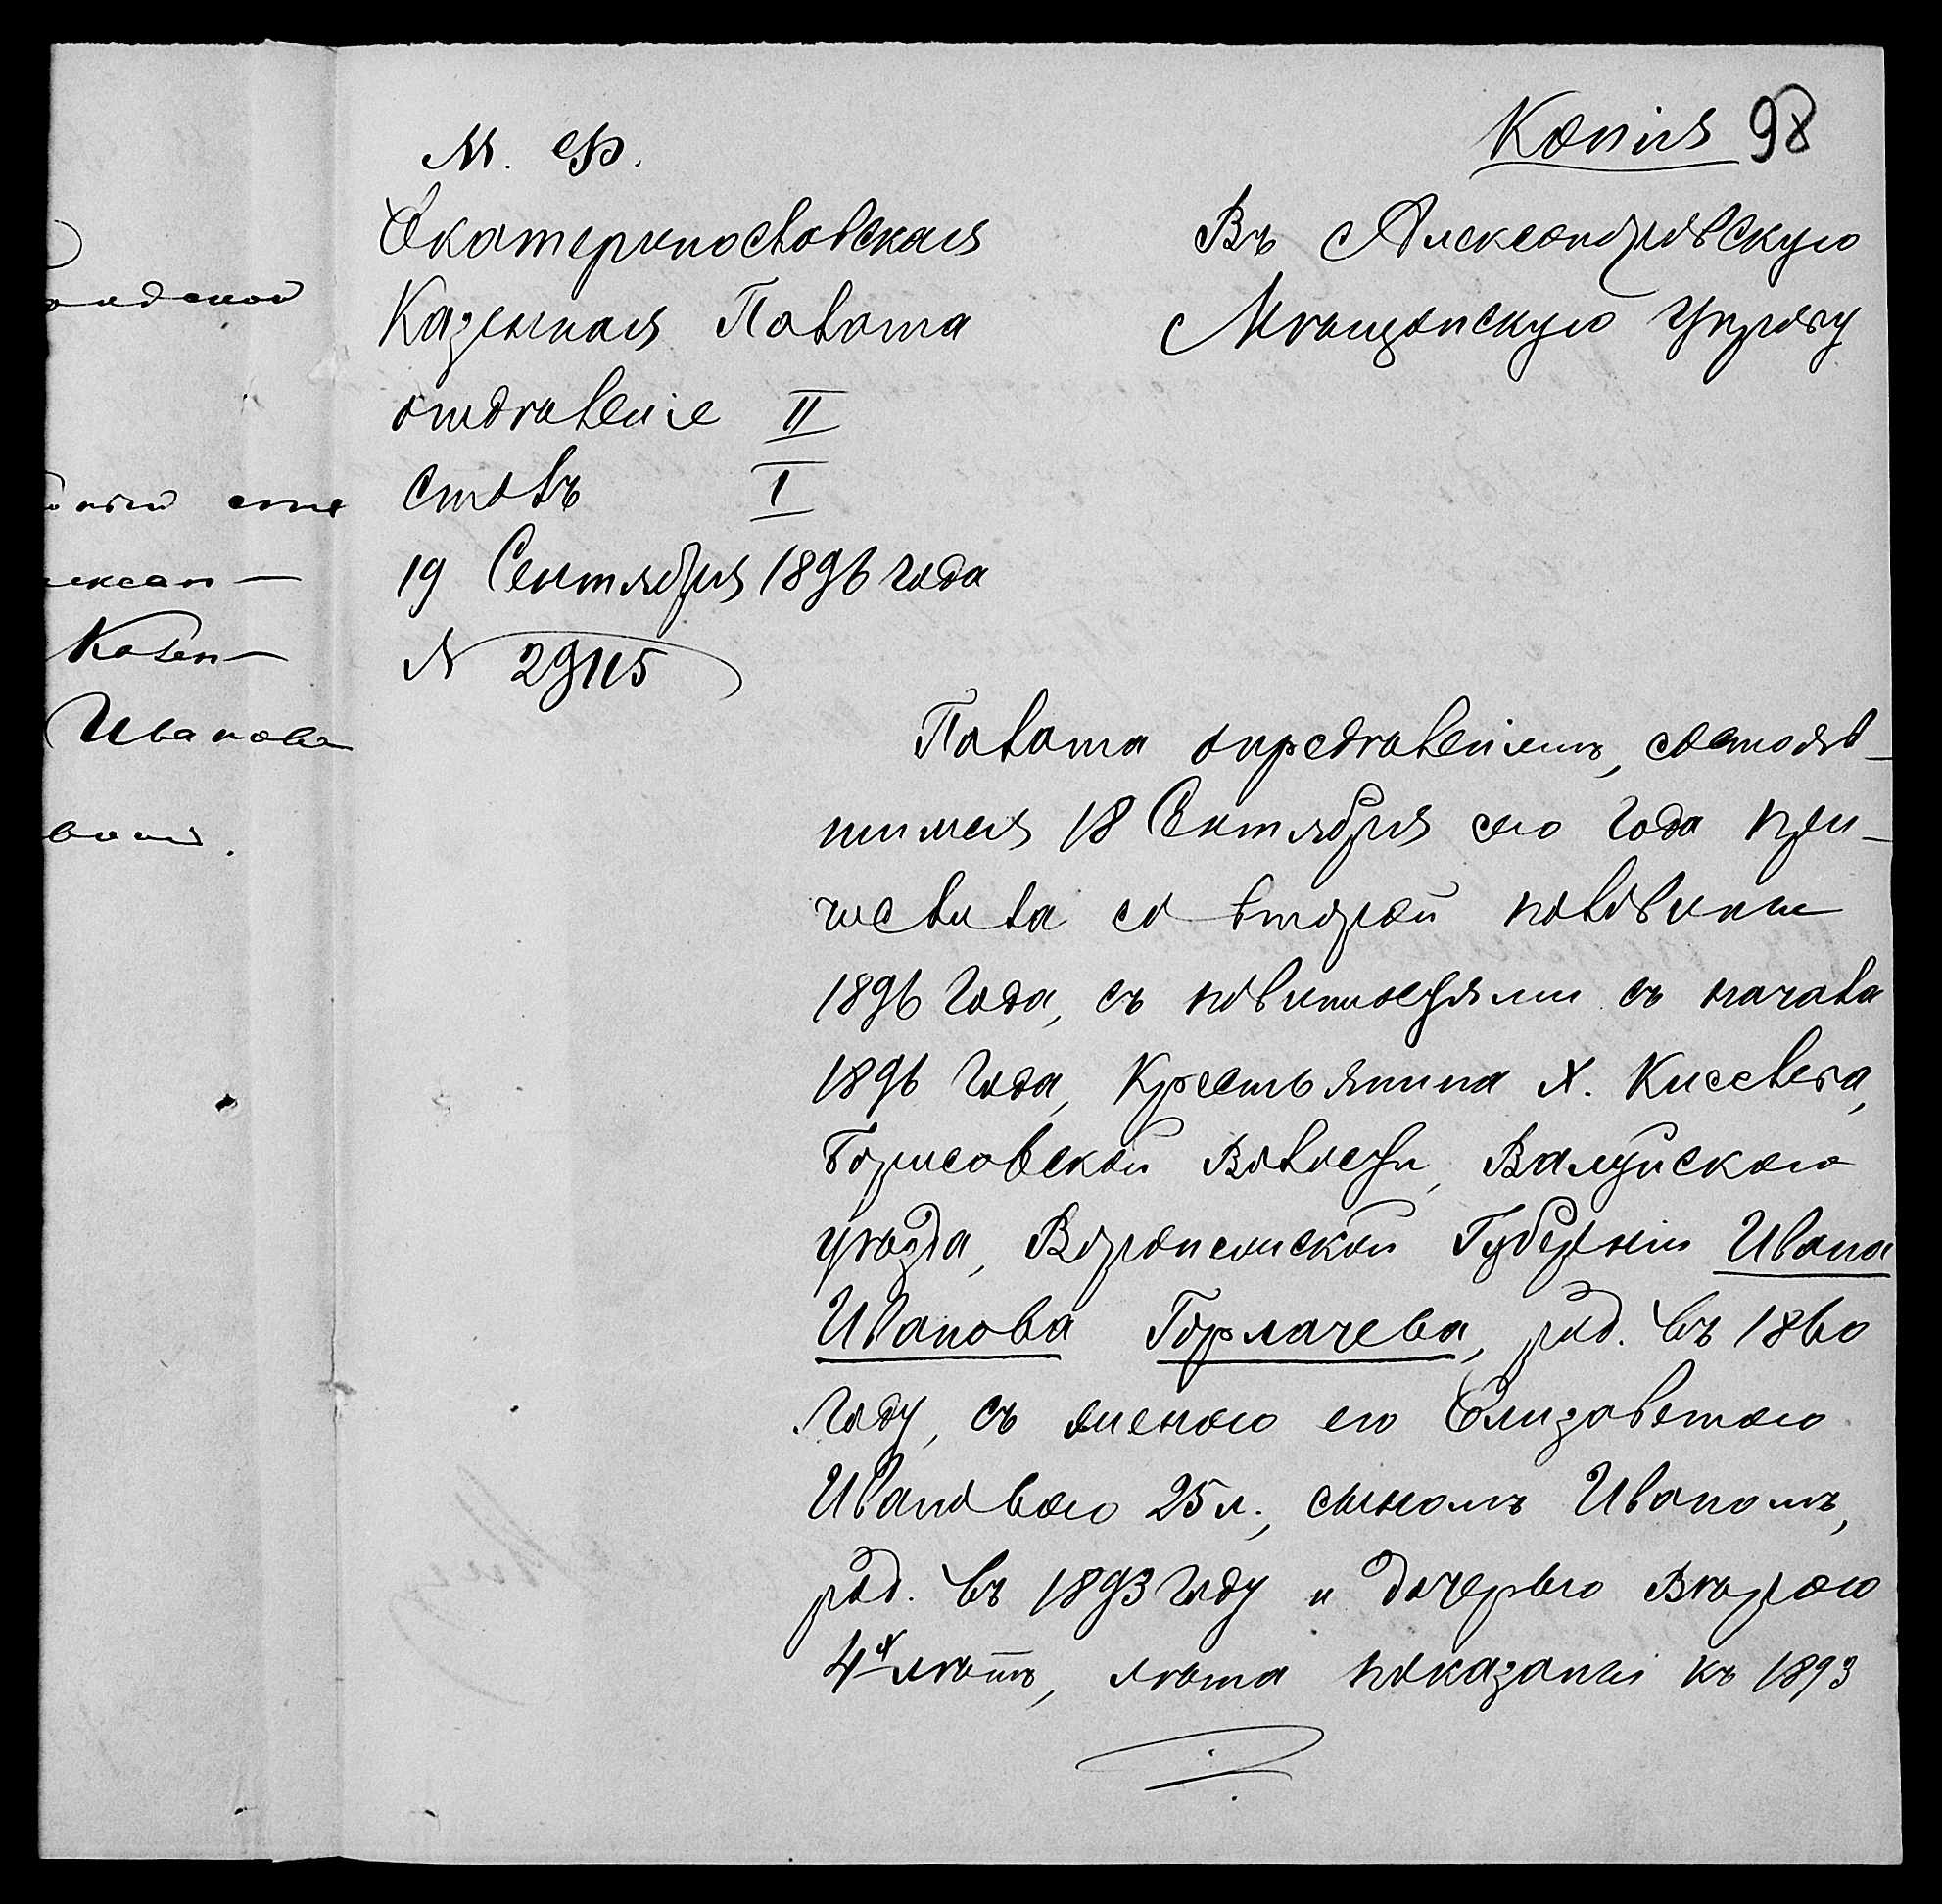 Копія 98
М. Ф.
Екатеринославская
Казенная Палата
отдѣленіе II
столъ I
19 Сентября 1896 года
№ 29115
Въ Александровскую
Мѣщанскую Управу
Палата опредѣленіемъ, состояв-
шимся 18 Сентября сего года при-
числила со второй половины
1896 года, съ повинностями съ начала
1896 года, Крестьянина х. Киселева,
Борисовской Волости, Валуйскаго
уѣзда, Воронежской Губерніи Ивана
Иванова Горлачева, род. въ 1860
году, съ женою его Елизаветою
Ивановою 25 л., сыномъ Иваномъ,
род. въ 1893 году и дочерью Вѣрою
4х лѣтъ, лѣта показаны къ 1893
ексан-
Иванова